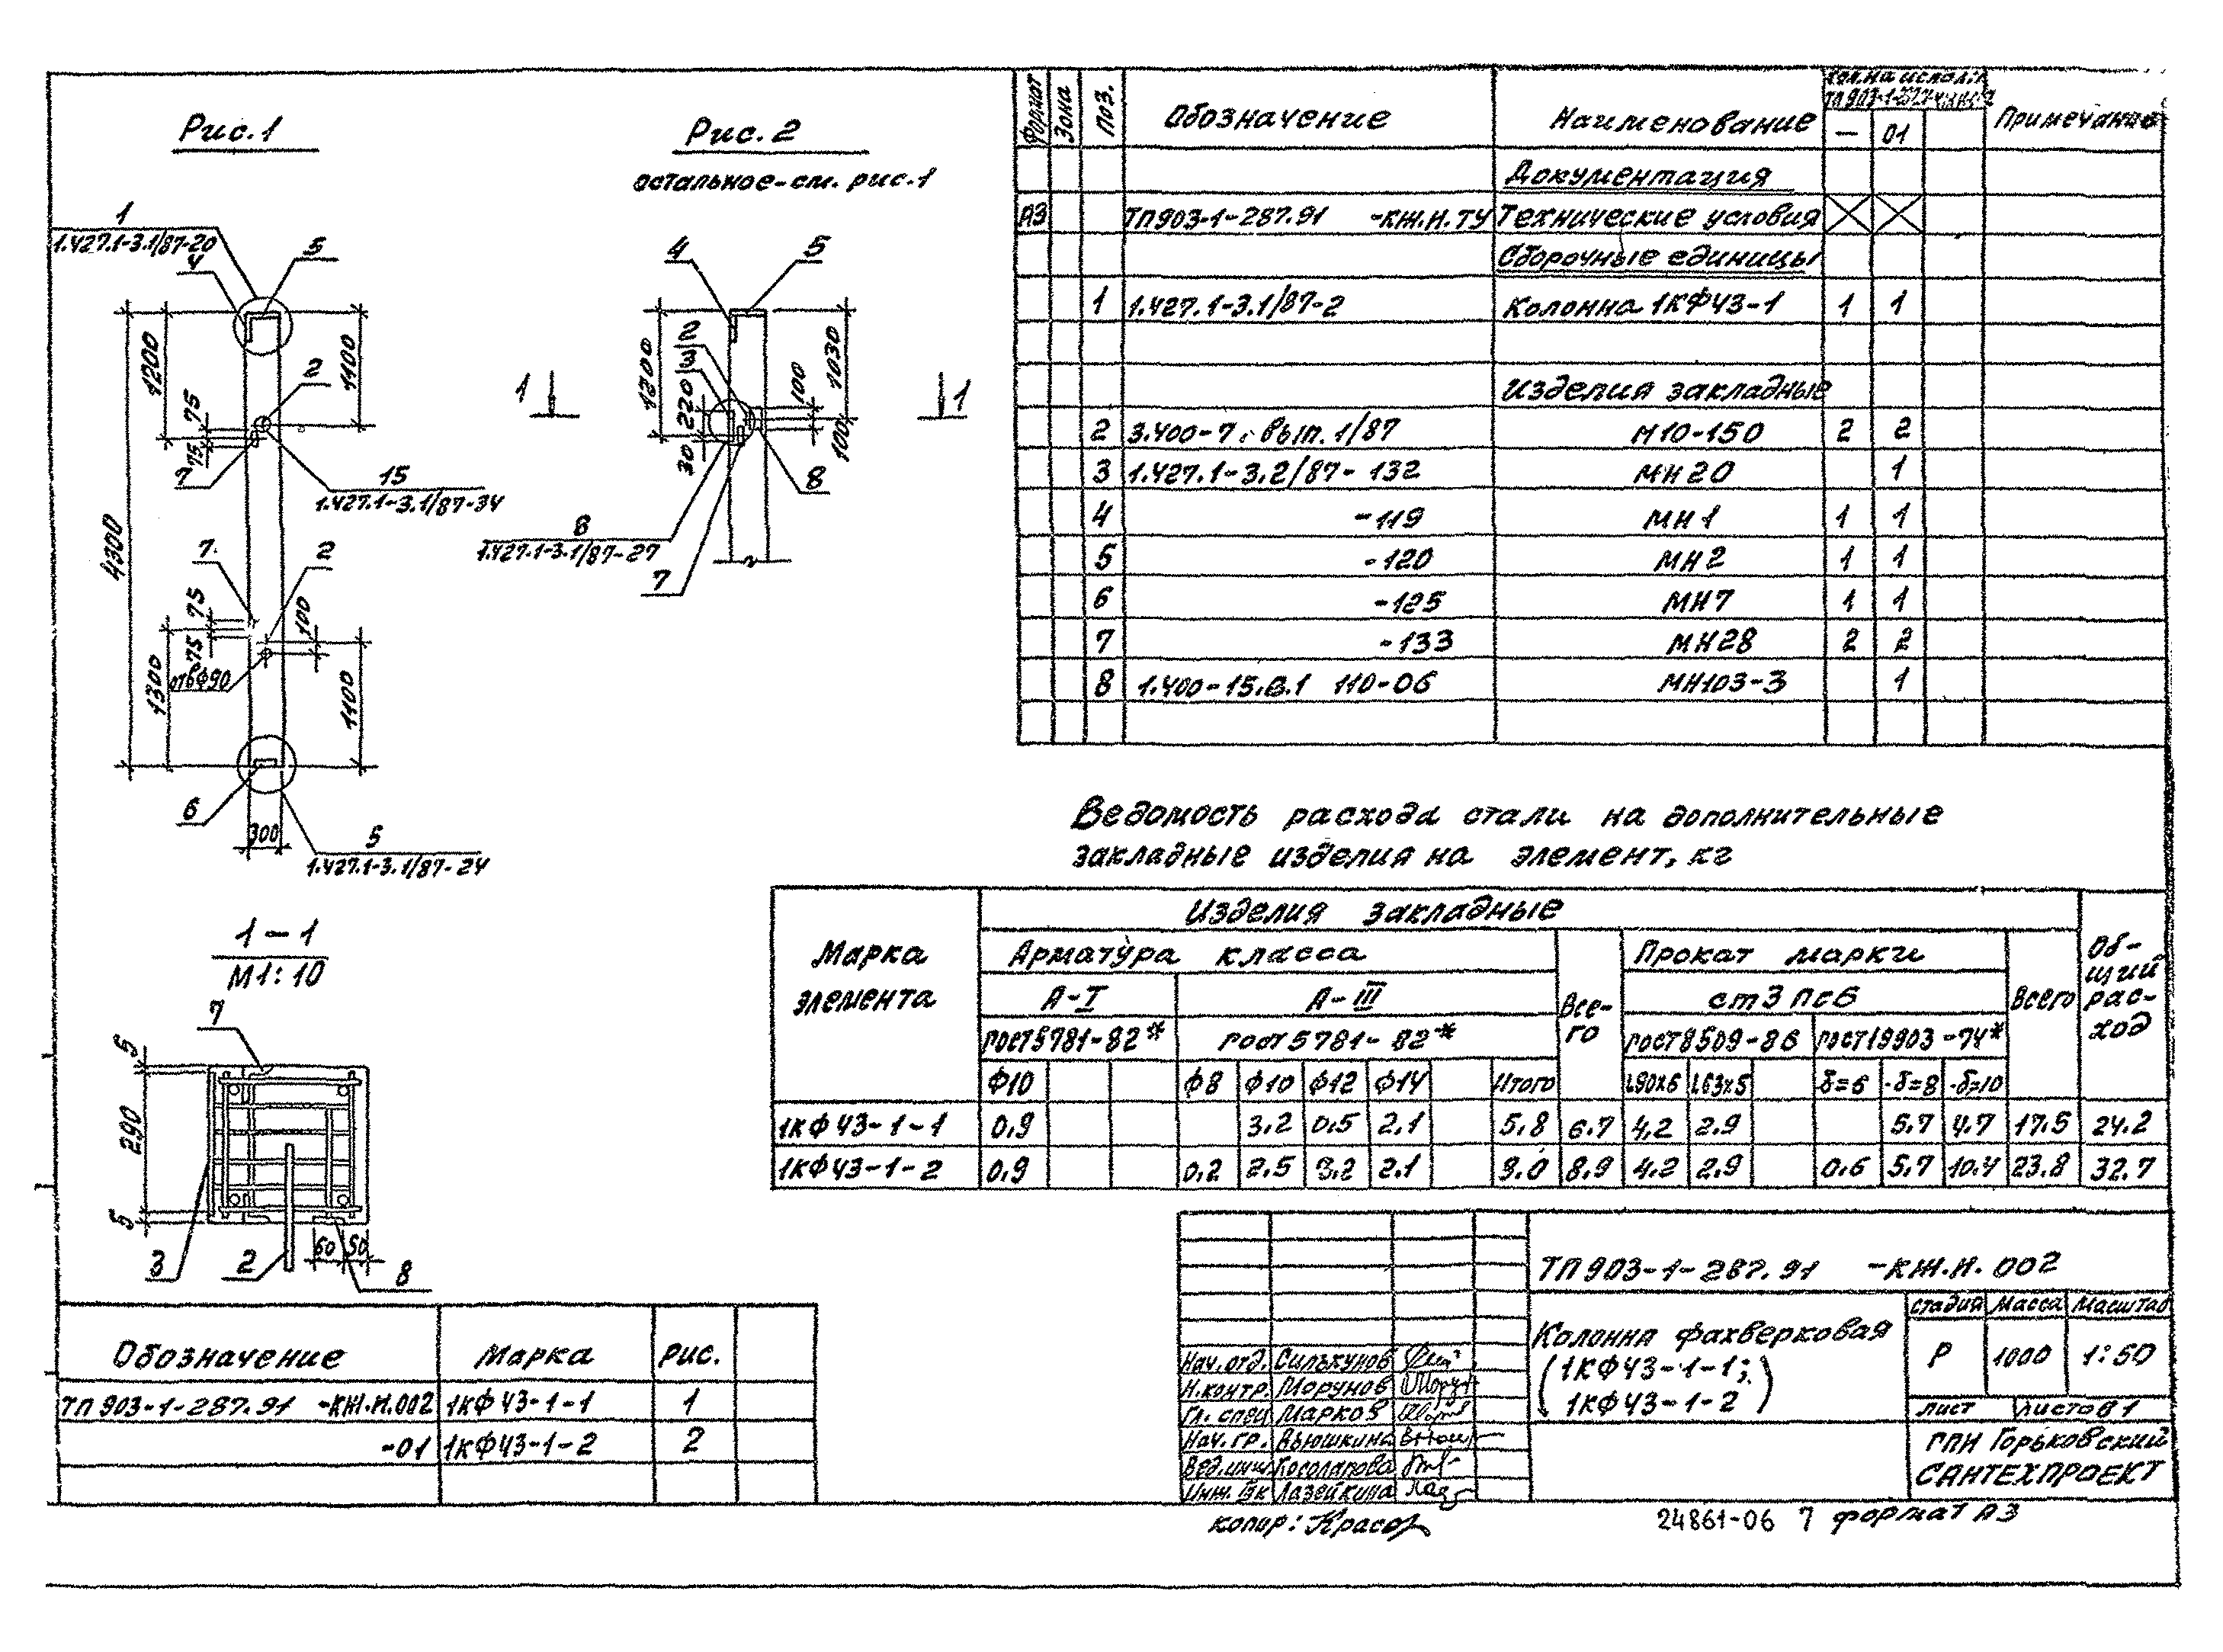 Рис.1
1
1.427.1-3.1/87-20
4
5
1200
1100
75
75
2
7
15
1.427.1-3.1/87-34
4300
7
2
75
75
100
отв Ф90
1300
1100
6
300
5
1.427.1-3.1/87-24
Рис. 2
остальное-см. рис.1
4
5
1200
2
3
220
30
100
1030
100
1
1
8
8
1.427.1-3.1/87-27
7
1-1
М1:10
7
5
290
5
3
2
60
50
8
Формат Зона Поз. Обозначение Наименование Кол. на исполн. Примечание
— 01
Документация
А3 ТП903-1-287.91 -КЖ.И.ТУ Технические условия
Сборочные единицы
1 1.427.1-3.1/87-2 Колонна 1КФ43-1 1 1
Изделия закладные
2 3.400-7, вып. 1/87 М10-150 2 2
3 1.427.1-3.2/87-132 МН20 1
4 -119 МН1 1 1
5 -120 МН2 1 1
6 -125 МН7 1 1
7 -133 МН28 2 2
8 1.400-15.В.1 110-06 МН103-3 1
Ведомость расхода стали на дополнительные
закладные изделия на элемент, кг
Марка элемента
Изделия закладные
Общий расход
Арматура класса Всего Прокат марки Всего
А-I А-III ст3 пс6
ГОСТ5781-82* ГОСТ5781-82* ГОСТ8509-86 ГОСТ19903-74*
Ф10 Ф8 Ф10 Ф12 Ф14 Итого L90х6 L63х5 δ=6 δ=8 δ=10
1КФ43-1-1 0,9 3.2 0,5 2.1 5,8 6.7 4,2 2.9 5.7 4.7 17.5 24.2
1КФ43-1-2 0,9 0,2 2.5 3.2 2.1 8.0 8.9 4.2 2.9 0.6 5.7 10.4 23.8 32.7
Обозначение Марка Рис.
ТП 903-1-287.91 -КЖ.И.002 1КФ43-1-1 1
-01 1КФ43-1-2 2
ТП903-1-287.91 -КЖ.И.002
Колонна фахверковая
(1КФ43-1-1;
1КФ43-1-2)
Стадия Масса Масштаб
Р 1000 1:50
Лист Листов 1
ГПИ Горьковский
САНТЕХПРОЕКТ
Нач.отд. Силькунов
Н.контр. Морунов
Гл. спец Марков
Нач. гр. Вьюшкина
Вед.инж Косолапова
Инж. IIк Лазейкина
копир:
24861-06 7 формат А3